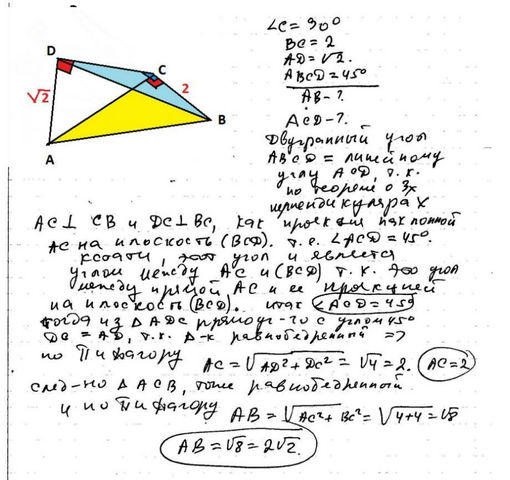 D
C
2
B
A
√2
∠C = 90°
BC = 2
AD = √2.
ABCD = 45°
AB - ?
ACD - ?
Двугранный угол
ABCD = линейному
углу ACD, т.к.
по теореме о 3х
перпендикулярах
AC ⊥ CB и DC ⊥ BC, как проекция наклонной
AC на плоскость (BCD). т.е. ∠ACD = 45°.
кстати, этот угол и является
углом между AC и (BCD) т.к. это угол
между прямой AC и ее проекцией
на плоскость (BCD). итак ∠ACD = 45°
тогда из △ADC прямоуг-го с углом 45°
DC = AD, т.к. △-к равнобедренный =>
по Пифагору AC = √AD² + DC² = √4 = 2. AC = 2
след-но △ACB, тоже равнобедренный
и по Пифагору AB = √AC² + BC² = √4+4 = √8
AB = √8 = 2√2.